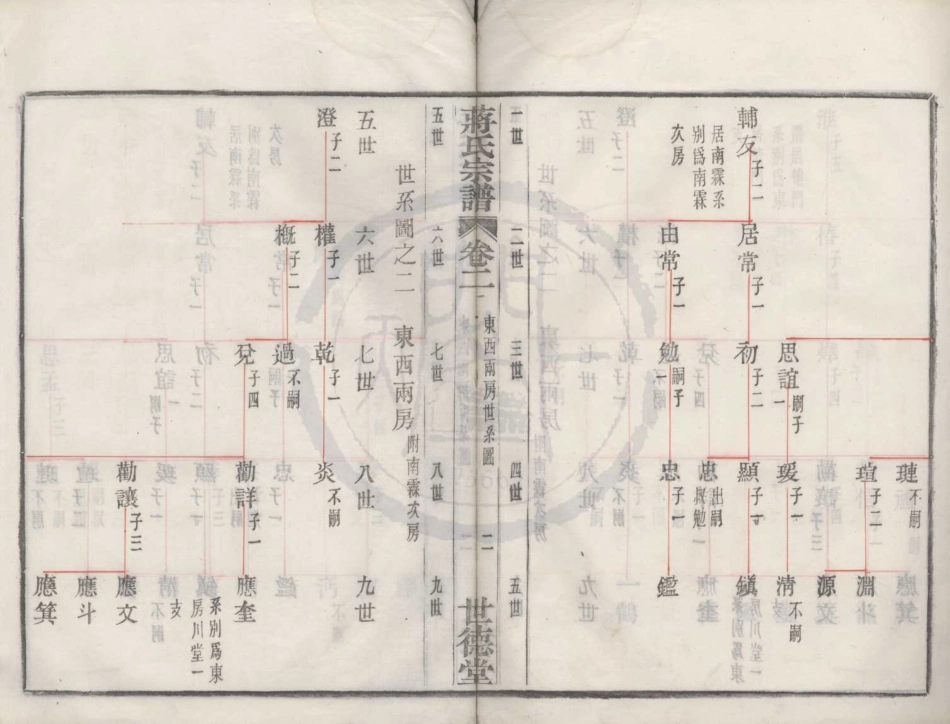 輔友 子二
居南霖系
別爲南霖
次房
居常 子一
由常 子一
思誼 嗣子一
初 子二
勉 嗣子一
璉 不嗣
瑄 子二
瑗 子一
顯 子一
忠 出嗣與勉
忠 子一
淵
源
清 不嗣
鎮
鑑
一世
二世
三世
四世
五世
蔣氏宗譜
卷二
東西兩房世系圖
二
世德堂
五世
六世
七世
八世
九世
世系圖之二 東西兩房 附南霖次房
五世
六世
七世
八世
九世
澄 子二
權 子一
概 子二
乾 子一
過 不嗣
兌 子四
炎 不嗣
勸詳 子一
勸讓 子三
應奎
系別爲東
房川堂一
支
應文
應斗
應箕